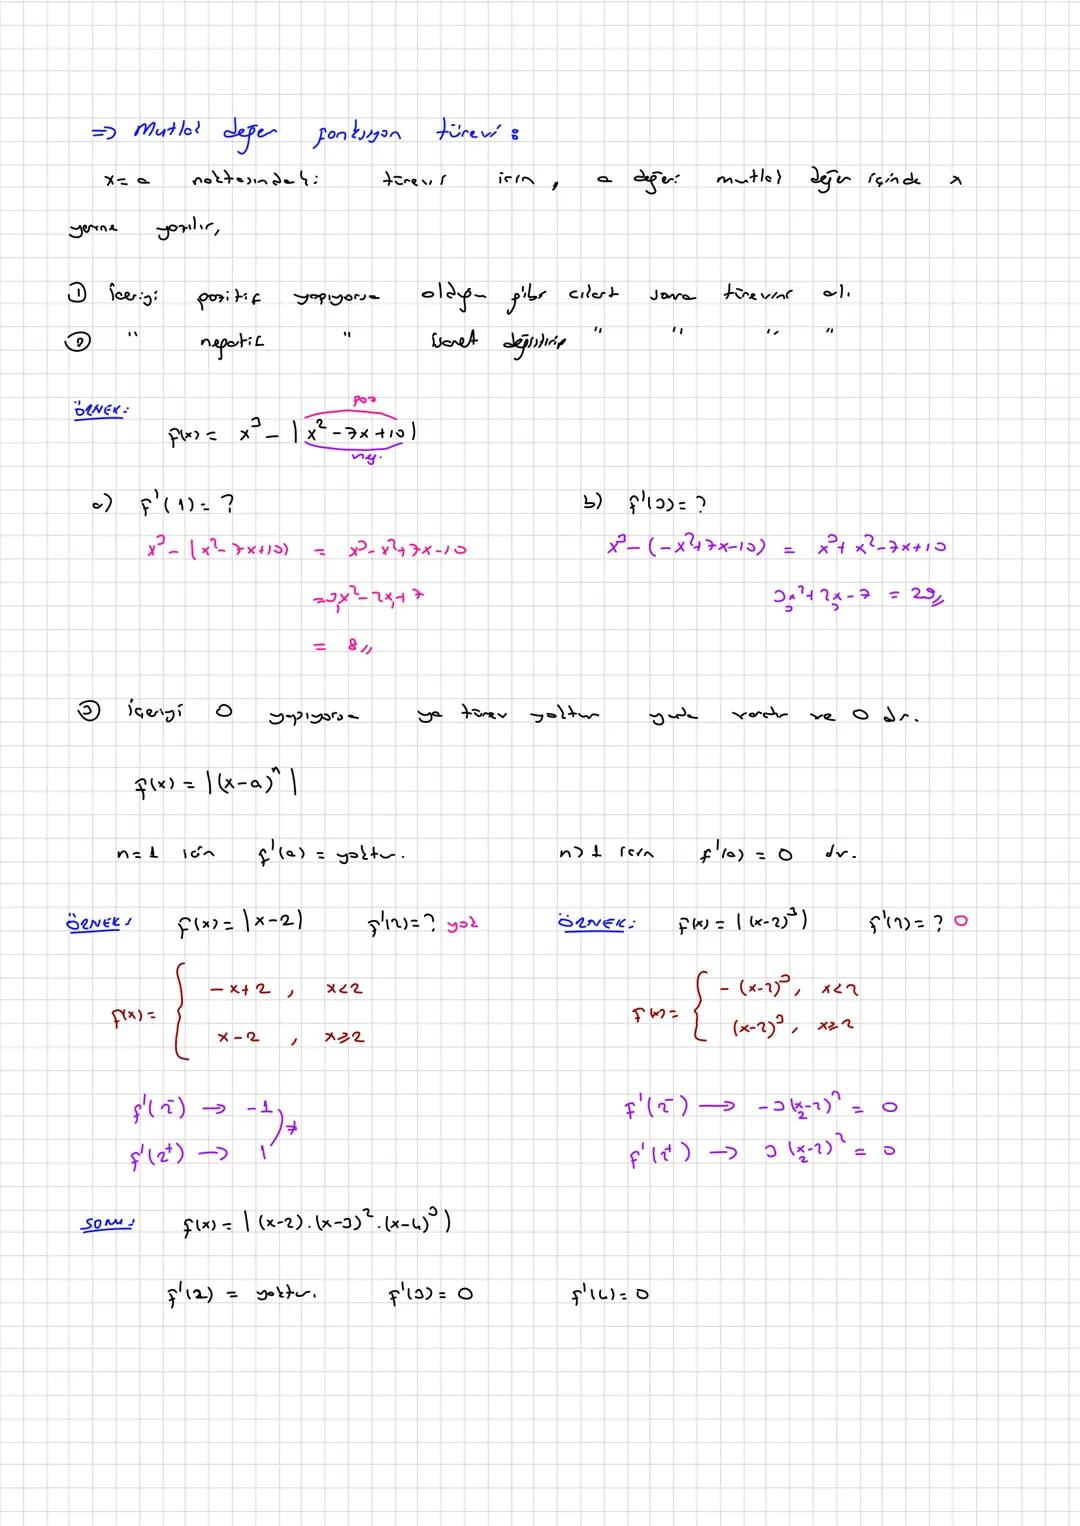 => Mutlak değer fonksiyon türevi :
x = a noktasındaki türevi için , a değeri mutlak değer içinde x
yerine yazılır,
① İçeriği pozitif yapıyorsa olduğu gibi çıkart sonra türevini al.
② " negatif " işaret değiştirip " " " "
ÖRNEK:
poz
f(x) = x³ - |x² - 7x + 10|
neg.
a) f'(1) = ? b) f'(3) = ?
x³ - (x² - 7x + 10) = x³ - x² + 7x - 10 x³ - (-x² + 7x - 10) = x³ + x² - 7x + 10
= 3x² - 2x + 7 3x² + 2x - 7 = 29//
= 8//
③ içeriği 0 yapıyorsa ya türev yoktur ya da vardır ve 0 dır.
f(x) = |(x-a)ⁿ|
n=1 için f'(a) = yoktur. n>1 için f'(a) = 0 dır.
ÖRNEK: f(x) = |x-2| f'(2) = ? yok ÖRNEK: f(x) = |(x-2)³| f'(2) = ? 0
f(x) = { -x+2 , x<2 f(x) = { -(x-2)³ , x<2
x-2 , x≥2 (x-2)³ , x≥2
f'(2⁻) → -1 f'(2⁻) → -3(x-2)² = 0
≠
f'(2⁺) → 1 f'(2⁺) → 3(x-2)² = 0
SORU: f(x) = |(x-2).(x-3)².(x-4)³|
f'(2) = yoktur. f'(3) = 0 f'(4) = 0